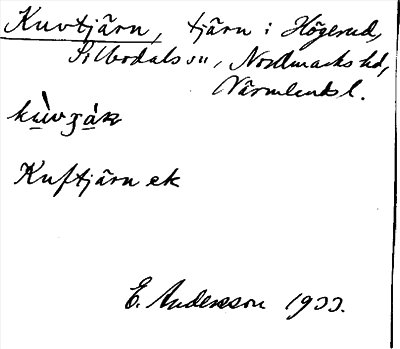 Kuvtjärn, tjärn i Högerud,
Silbodals sn, Nordmarks hd,
Värmlands l.
Kuftjärn ek
E. Andersson 1933.